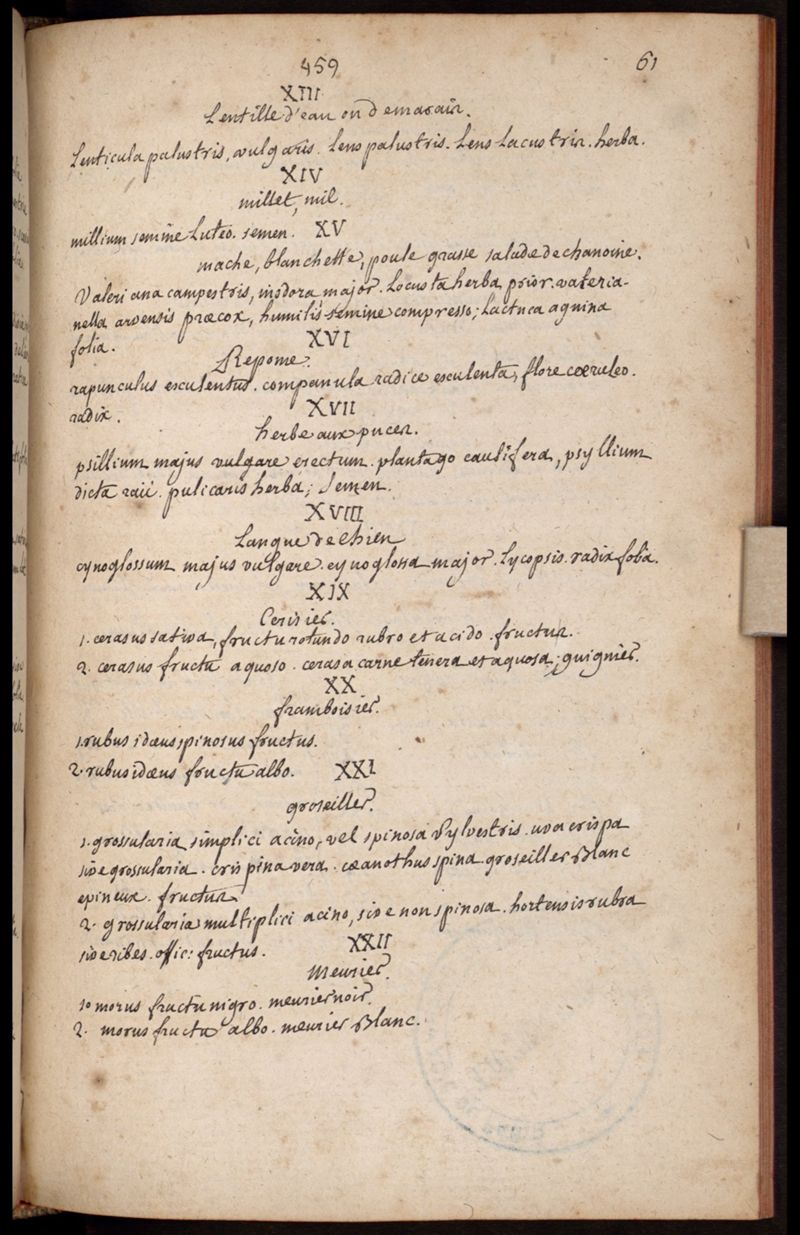 459
61
XIII
Lentille d'eau ou de marais.
Lenticula palustris, vulgaris. Lens palustris. Lens Lacustris. herba.
XIV
millet, mil.
millium semine Luteo. semen. XV
mache, blanchette, poule grasse salade de chanoine.
Valeriana campestris, inodora major. Locusta herba prior. valeria-
nella arvensis præcox, humilis semine compresso; Lactuca agnina
folia.
XVI
Reponse.
rapunculus esculentus. companula radice esculenta, flore cœruleo.
radix.
XVII
herbe aux puces.
psillium majus vulgare erectum. plantago caulifera, psyllium
dicta raii. pulicaris herba; semen.
XVIII
Langue de chien
cynoglossum majus vulgare. cynoglossa major. Lycopsis. radix folia.
XIX
Cerisier.
1. cerasus sativa, fructu rotundo rubro et acido. fructus.
2. cerasus fructu aquoso. cerasa carne tenera et aquosa; guignier.
XX
framboisier.
1. rubus idæus spinosus fructus.
2. rubus idæus fructu albo. XXI
groseiller.
1. grossularia, simplici acino, vel spinosa sylvestris. uva crispa
sive grossularia. crispina vera. ceanothus spina. groseiller Blanc
epineux. fructus.
2. grossularia multiplici acino, sive non spinosa. hortensis rubra
sive ribes. offic: fructus.
XXII
Meurier.
1o morus fructu nigro. meurier noir.
2. morus fructu albo. meurier Blanc.